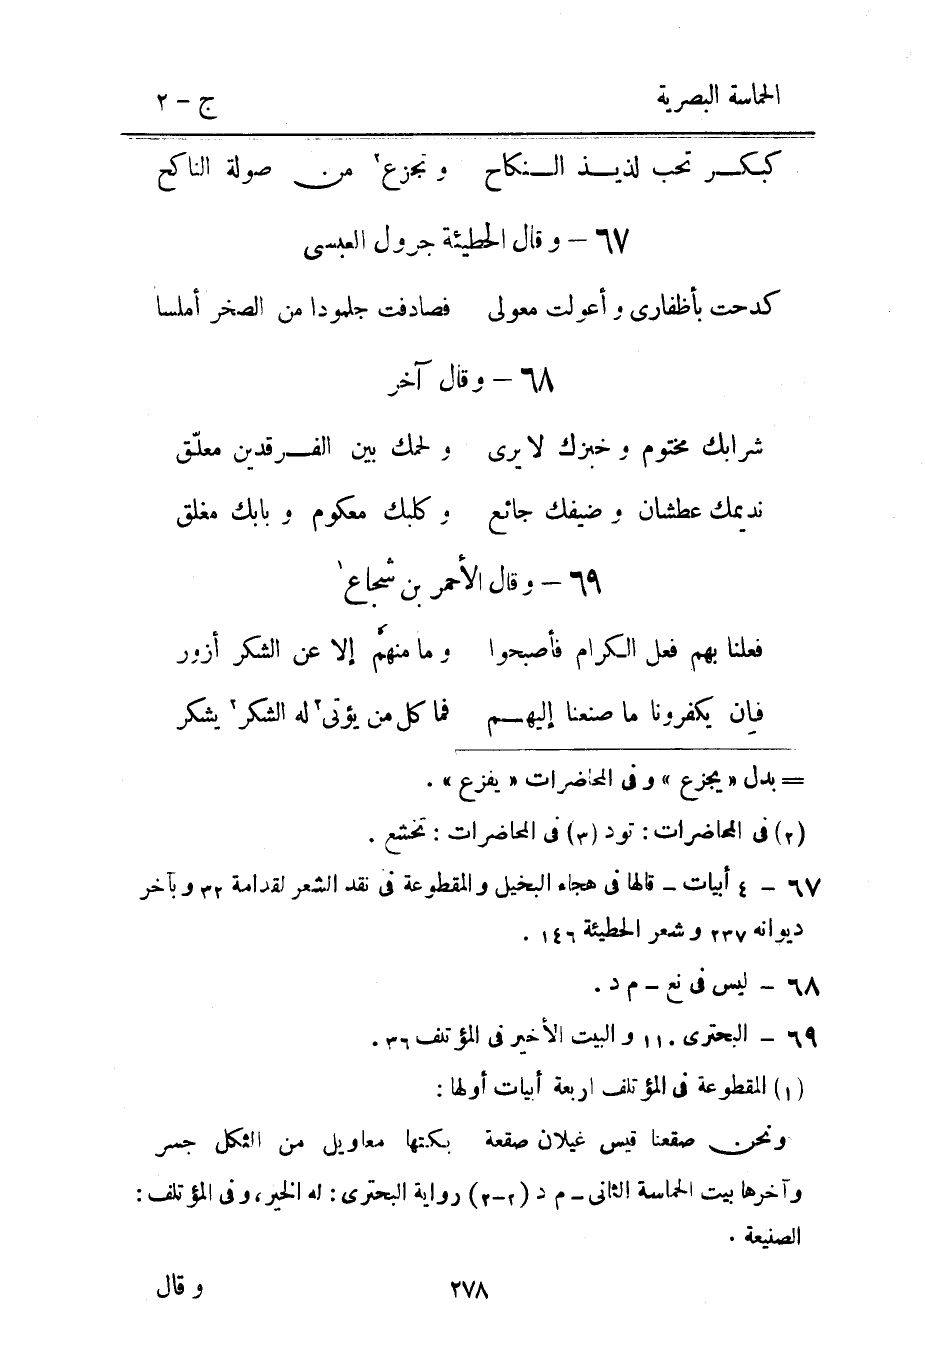 الحماسة البصرية ج – ٢
كبكر تحب لذيذ النكاح و تجزع٢ من صولة الناكح
٦٧ – و قال الحطيئة جرول العبسى
كدحت بأظفارى و أعولت معولى فصادفت جلمودا من الصخر أملسا
٦٨ – و قال آخر
شرابك مختوم و خبزك لا يرى و لحمك بين الفرقدين معلّق
نديمك عطشان و ضيفك جائع و كلبك معكوم و بابك مغلق
٦٩ – و قال الأحمر بن شجاع١
فعلنا بهم فعل الكرام فأصبحوا و ما منهمُ إلا عن الشكر أزور
فإن يكفرونا ما صنعنا إليهم فما كل من يؤتى٢ له الشكر٢ يشكر
= بدل « يجزع » و فى المحاضرات « يفزع » .
(٢) فى المحاضرات : تود (٣) فى المحاضرات : تخشع .
٦٧ – ٤ أبيات – قالها فى هجاء البخيل والمقطوعة فى نقد الشعر لقدامة ٣٢ وبآخر
ديوانه ٢٣٧ و شعر الحطيئة ١٤٦ .
٦٨ – ليس فى نع – م د .
٦٩ – البحترى ١١٠ و البيت الأخير فى المؤتلف ٣٦ .
(١) المقطوعة فى المؤتلف اربعة أبيات أولها :
ونحن صقعنا قيس غيلان صقعة بكتها معاويل من الثكل جسر
وآخرها بيت الحماسة الثانى – م د (٢–٢) رواية البحترى : له الخير ، وفى المؤتلف :
الصنيعة .
٢٧٨ و قال